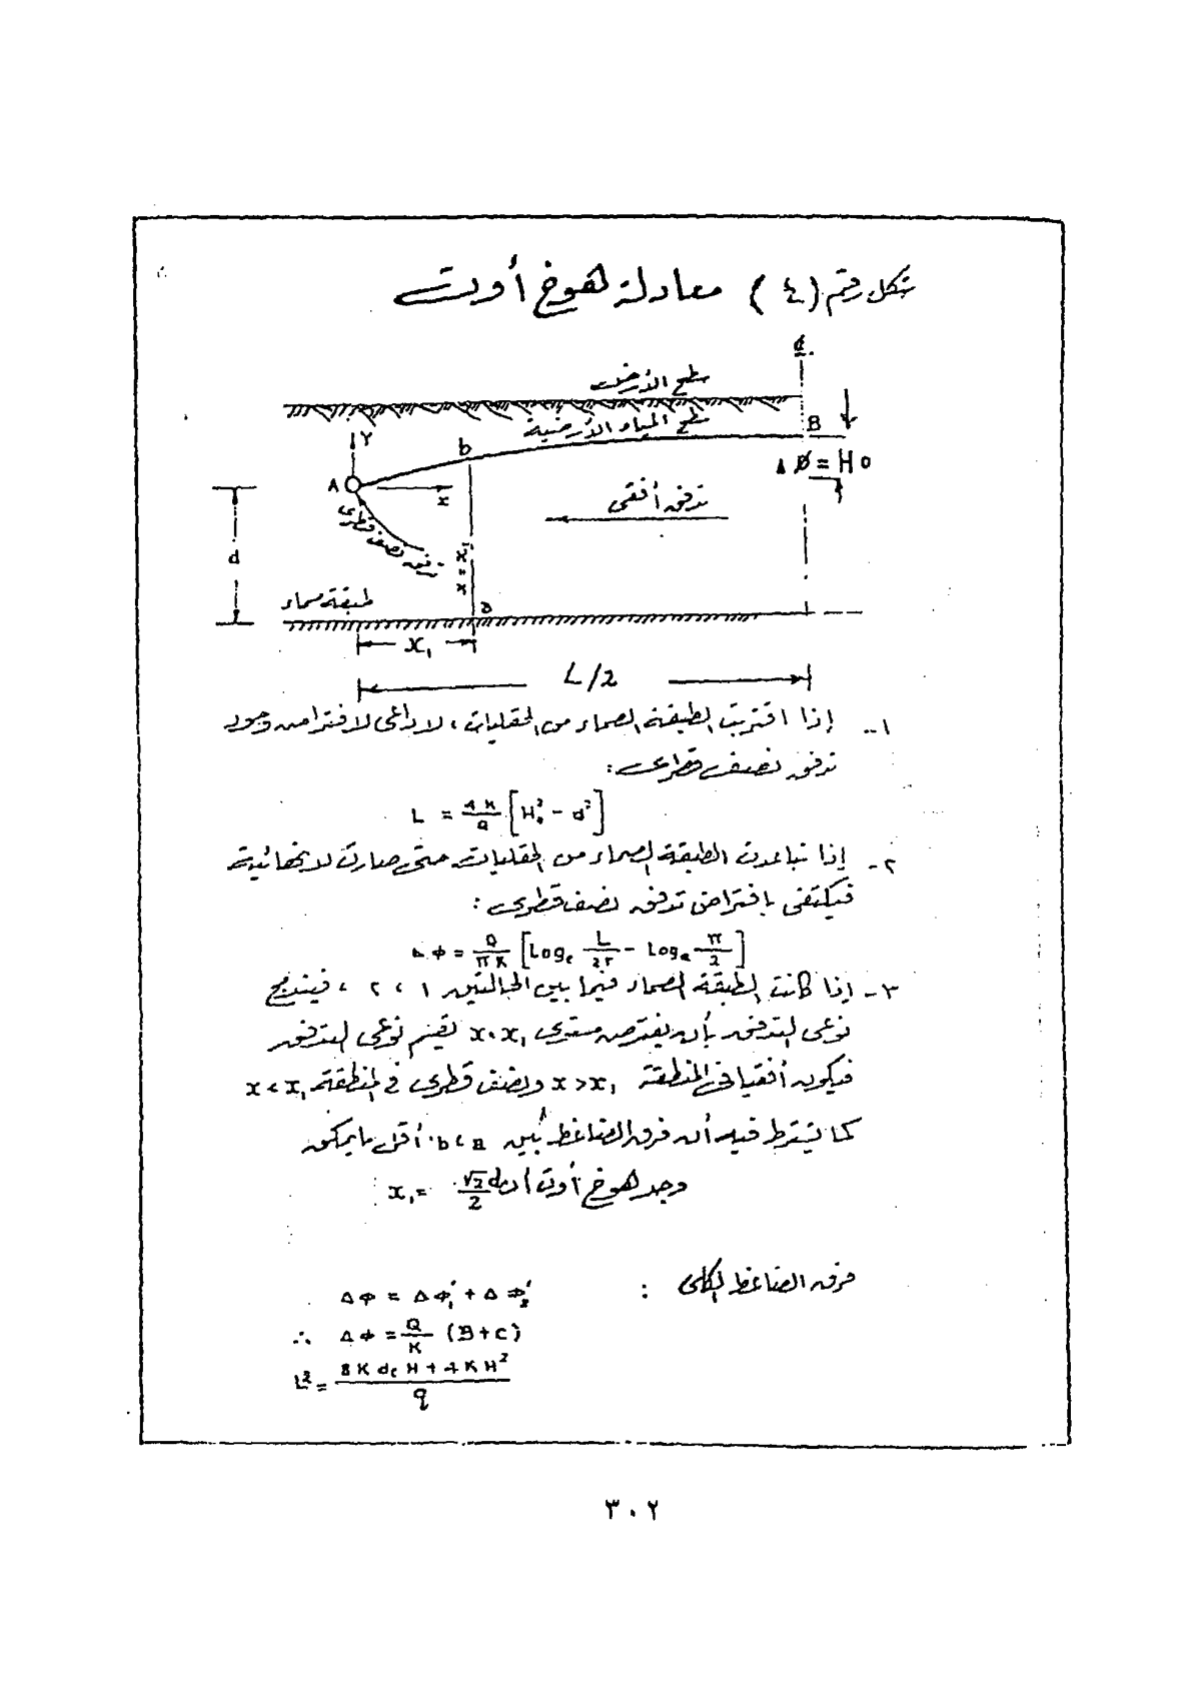 شكل رقم (٤) معادلة هوخ أوت
¢
سطح الأرض
سطح المياه الأرضية
B
Y
b
Δ Ø = H o
A
x
تدفق أفقي
تدفق نصف قطري
d
x = x₁
طبقة صماء
a
x₁
L/2
١- إذا اقتربت الطبقة الصماء من الحقليات ، لا داعى لافتراض وجود
تدفق نصف قطرى :
L = 4 K / Q [H₀² - d²]
٢- إذا تباعدت الطبقة الصماء من الحقليات حتى صارت لا نهائية
فيكتفى بافتراض تدفق نصف قطرى :
Δ φ = Q / π K [Logₑ L / 2r - Logₑ π / 2]
٣- إذا كانت الطبقة الصماء فيما بين الحالتين ١ ، ٢ ، فيندمج
نوعى التدفق بأن يفترض مستوى x = x₁ تقسم نوعى التدفق
فيكون أفقيا فى المنطقة x > x₁ ونصف قطرى فى المنطقة x < x₁
كما يشترط فيه أن فرق الضاغط بين a ، b أقل ما يمكن
وجد هوخ أوت أن x₁ = √2/2 d
فرق الضاغط الكلى : Δ φ = Δ φ₁' + Δ φ₂'
∴ Δ φ = Q / K (B + C)
L² = 8 K dₑ H + 4 K H² / q
٣٠٢